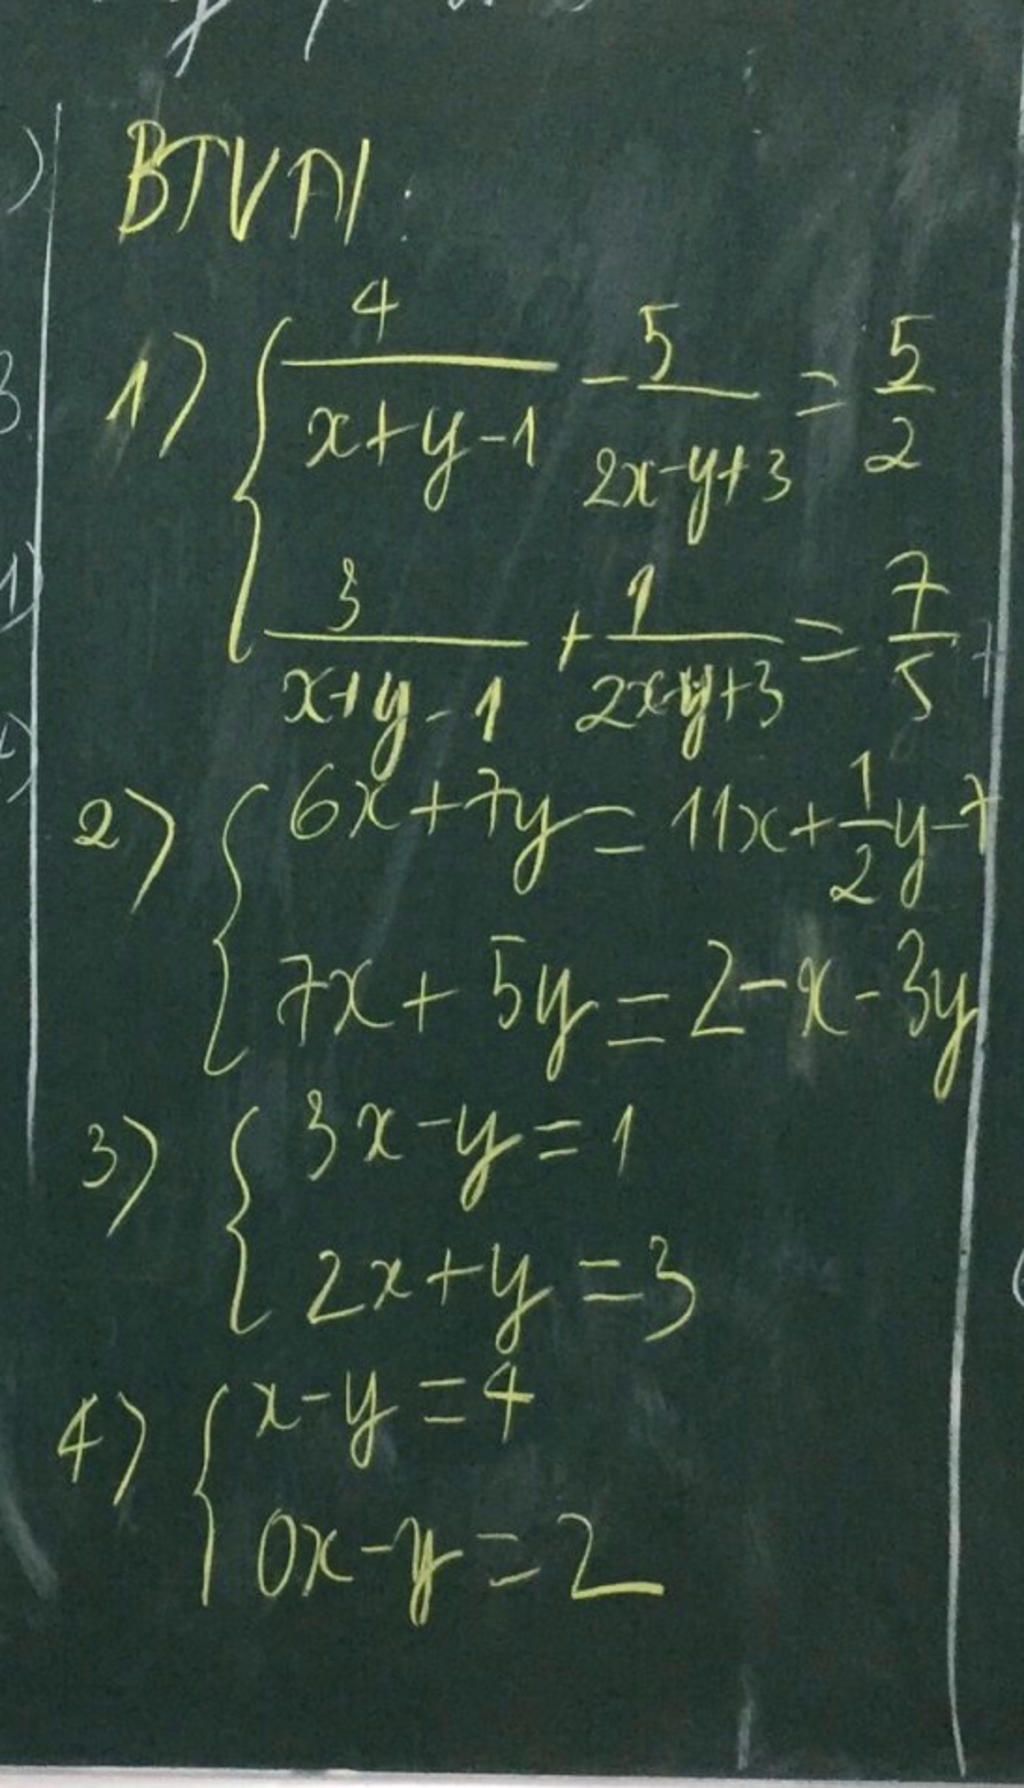 BTVN:
1) { 4/(x+y-1) - 5/(2x-y+3) = 5/2
3/(x+y-1) + 1/(2x-y+3) = 7/5
2) { 6x+7y = 11x+1/2y-7
7x + 5y = 2-x-3y
3) { 3x-y=1
2x+y=3
4) { x-y=4
0x-y=2